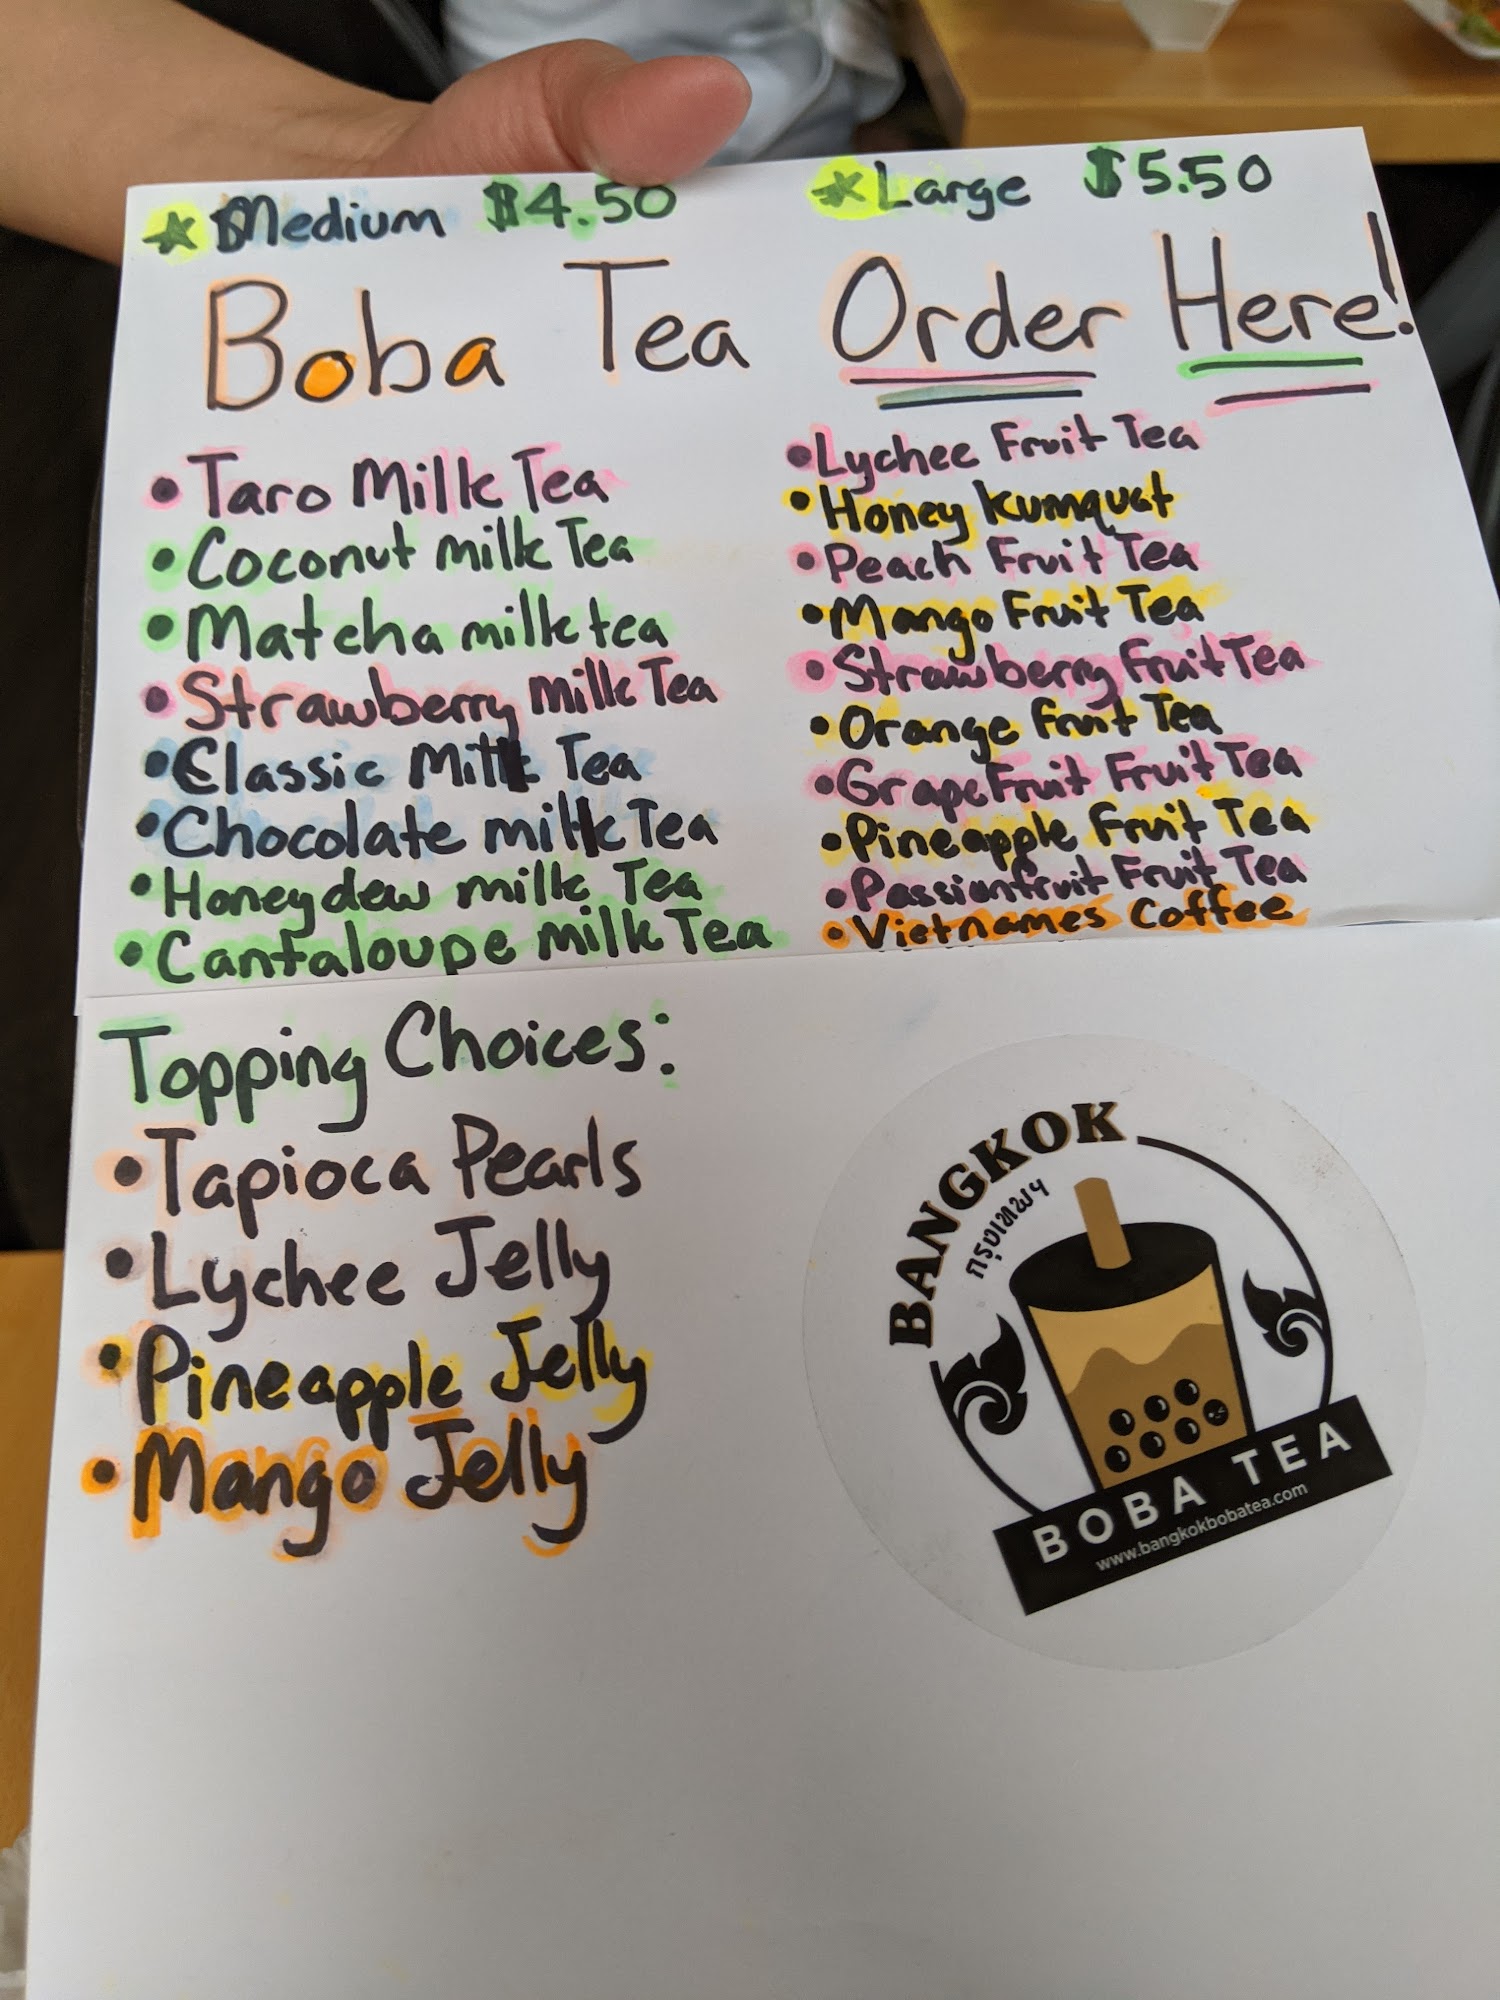 ☆ Medium $4.50 ☆ Large $5.50
Boba Tea Order Here!
• Taro Milk Tea
• Coconut milk Tea
• Matcha milk tea
• Strawberry milk Tea
• Classic Milk Tea
• Chocolate milk Tea
• Honeydew milk Tea
• Cantaloupe milk Tea
• Lychee Fruit Tea
• Honey kumquat
• Peach Fruit Tea
• Mango Fruit Tea
• Strawberry Fruit Tea
• Orange Fruit Tea
• Grapefruit Fruit Tea
• Pineapple Fruit Tea
• Passionfruit Fruit Tea
• Vietnames Coffee
Topping Choices:
• Tapioca Pearls
• Lychee Jelly
• Pineapple Jelly
• Mango Jelly
BANGKOK
กรุงเทพฯ
BOBA TEA
www.bangkokbobatea.com